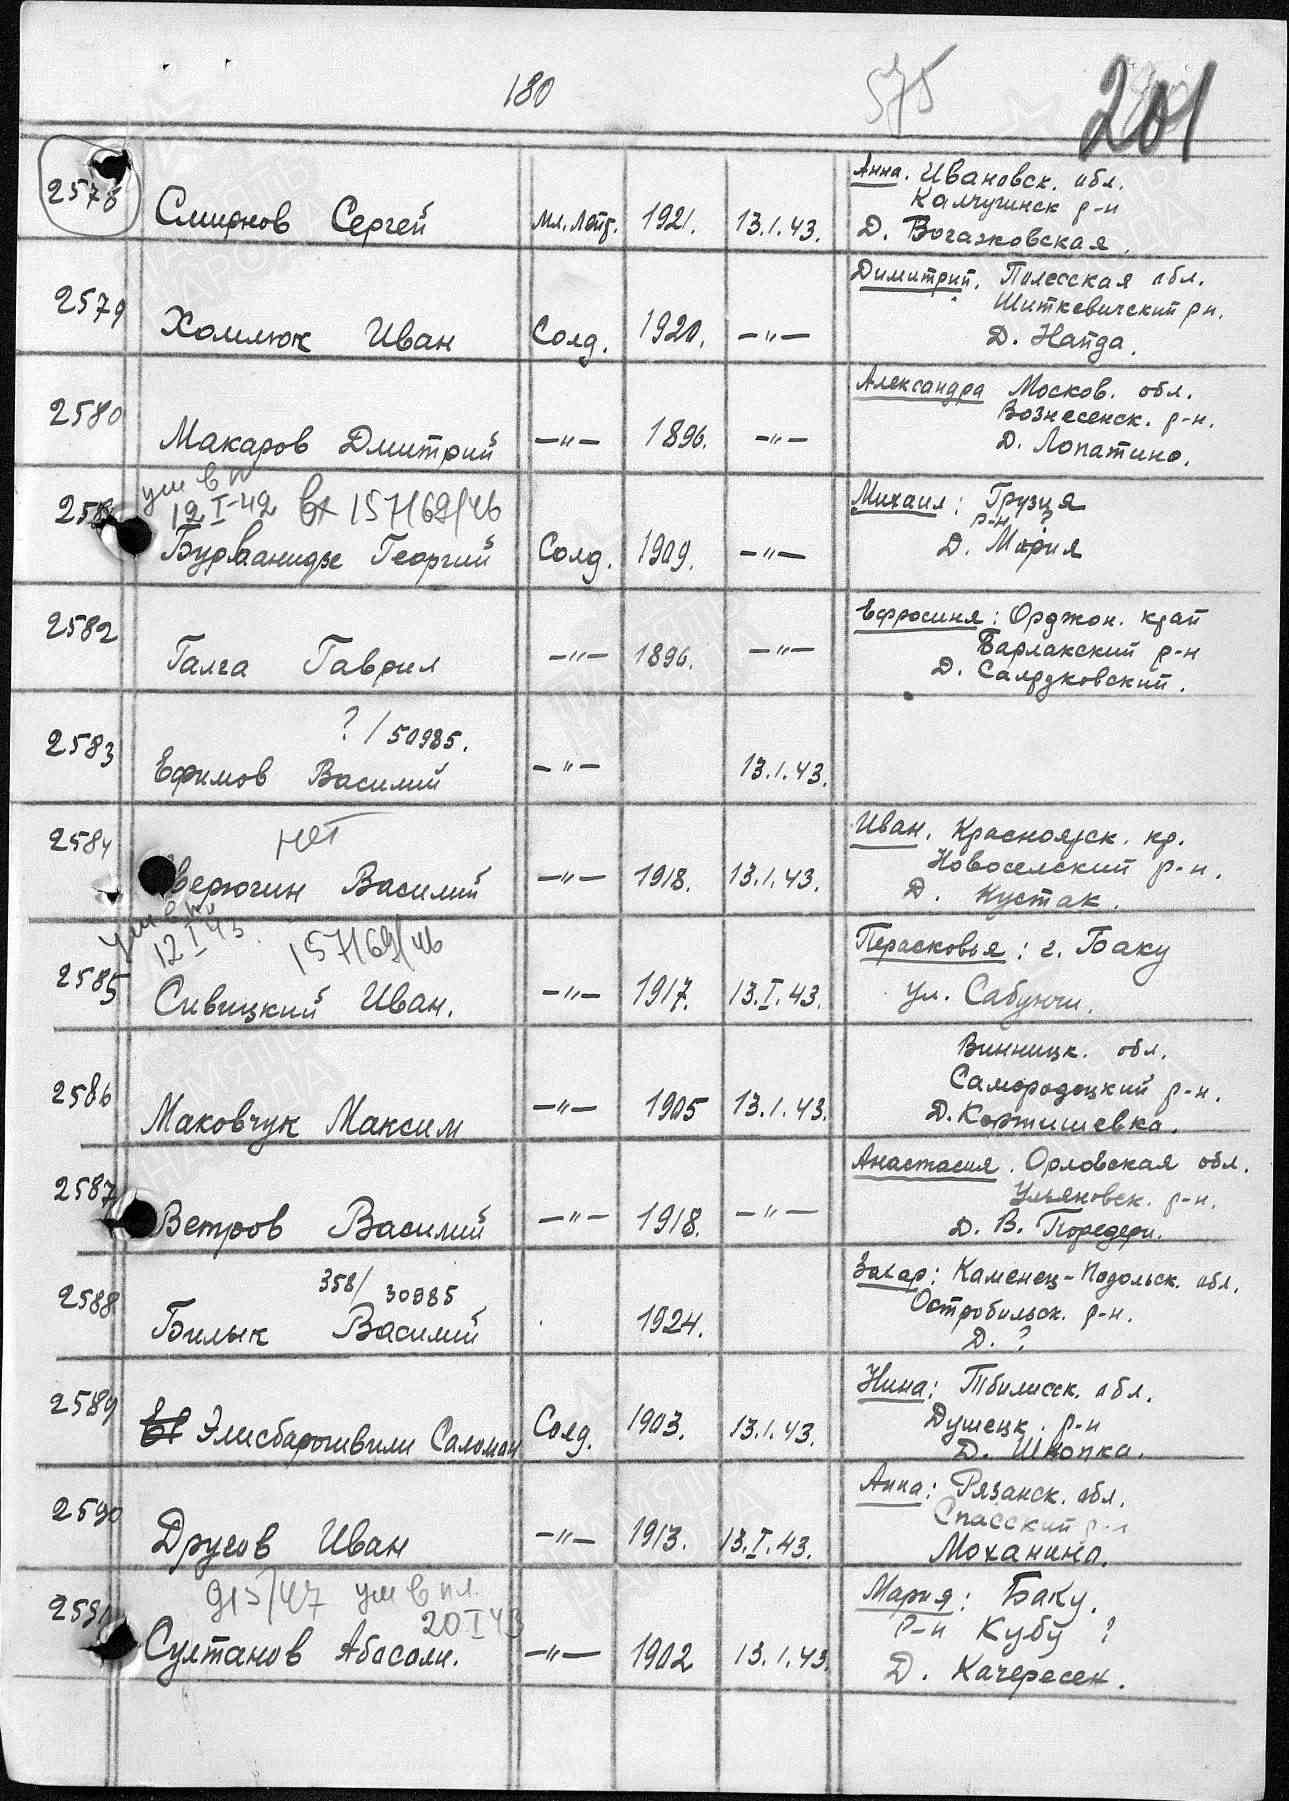 180
575
201
2578 Смирнов Сергей мл. лейт. 1921. 13.1.43. Анна. Ивановск. обл.
Калчугинск р-н
Д. Вогажковская.
2579 Хомлюк Иван Солд. 1920. —"— Димитрий. Полесская обл.
Шиткевичский рн.
Д. Найда.
2580 Макаров Дмитрий —"— 1896. —"— Александра Москов. обл.
Вознесенск. р-н.
Д. Лопатино.
ум в п
12 I-42 157/69/46
2581 Георгий Солд. 1909. —"— Михаил: Грузия
р-н ?
Д. Мария
2582 Галга Гаврил —"— 1896. —"— Ефросиня: Орджон. край
Барлакский р-н
Д.
? / 50985.
2583 Ефимов Василий —"— 13.1.43.
нет
2584 Верюгин Василий —"— 1918. 13.1.43. Иван. Красноярск. кр.
Новоселский р-н.
Д. Кустак.
ум в пл
12 I 43. 157/69/46
2585 Сивицкий Иван. —"— 1917. 13.I.43. Перасковья: г. Баку
ул. Сабунчи.
2586 Маковчук Максим —"— 1905 13.1.43. Винницк. обл.
Самородоцкий р-н.
Д. Кортишевка.
2587 Ветров Василий —"— 1918. —"— Анастасия. Орловская обл.
Ульяновск. р-н.
Д. В. Передери.
358/ 30985
2588 Билык Василий 1924. Захар: Каменец-Подольск. обл.
Остробильск. р-н.
Д. ?
2589 Элисбарошвили Саломон Солд. 1903. 13.1.43. Нина: Тбилисск. обл.
Душецк. р-н
Д. Шиопка.
2590 Друсов Иван —"— 1913. 13.I.43. Анна: Рязанск. обл.
Спасский р-н
Моханино.
915/47 ум в пл.
20 I 43
2591 Султанов Абасали. —"— 1902 13.1.43. Мария: Баку.
р-н Кубу ?
Д. Качересен.